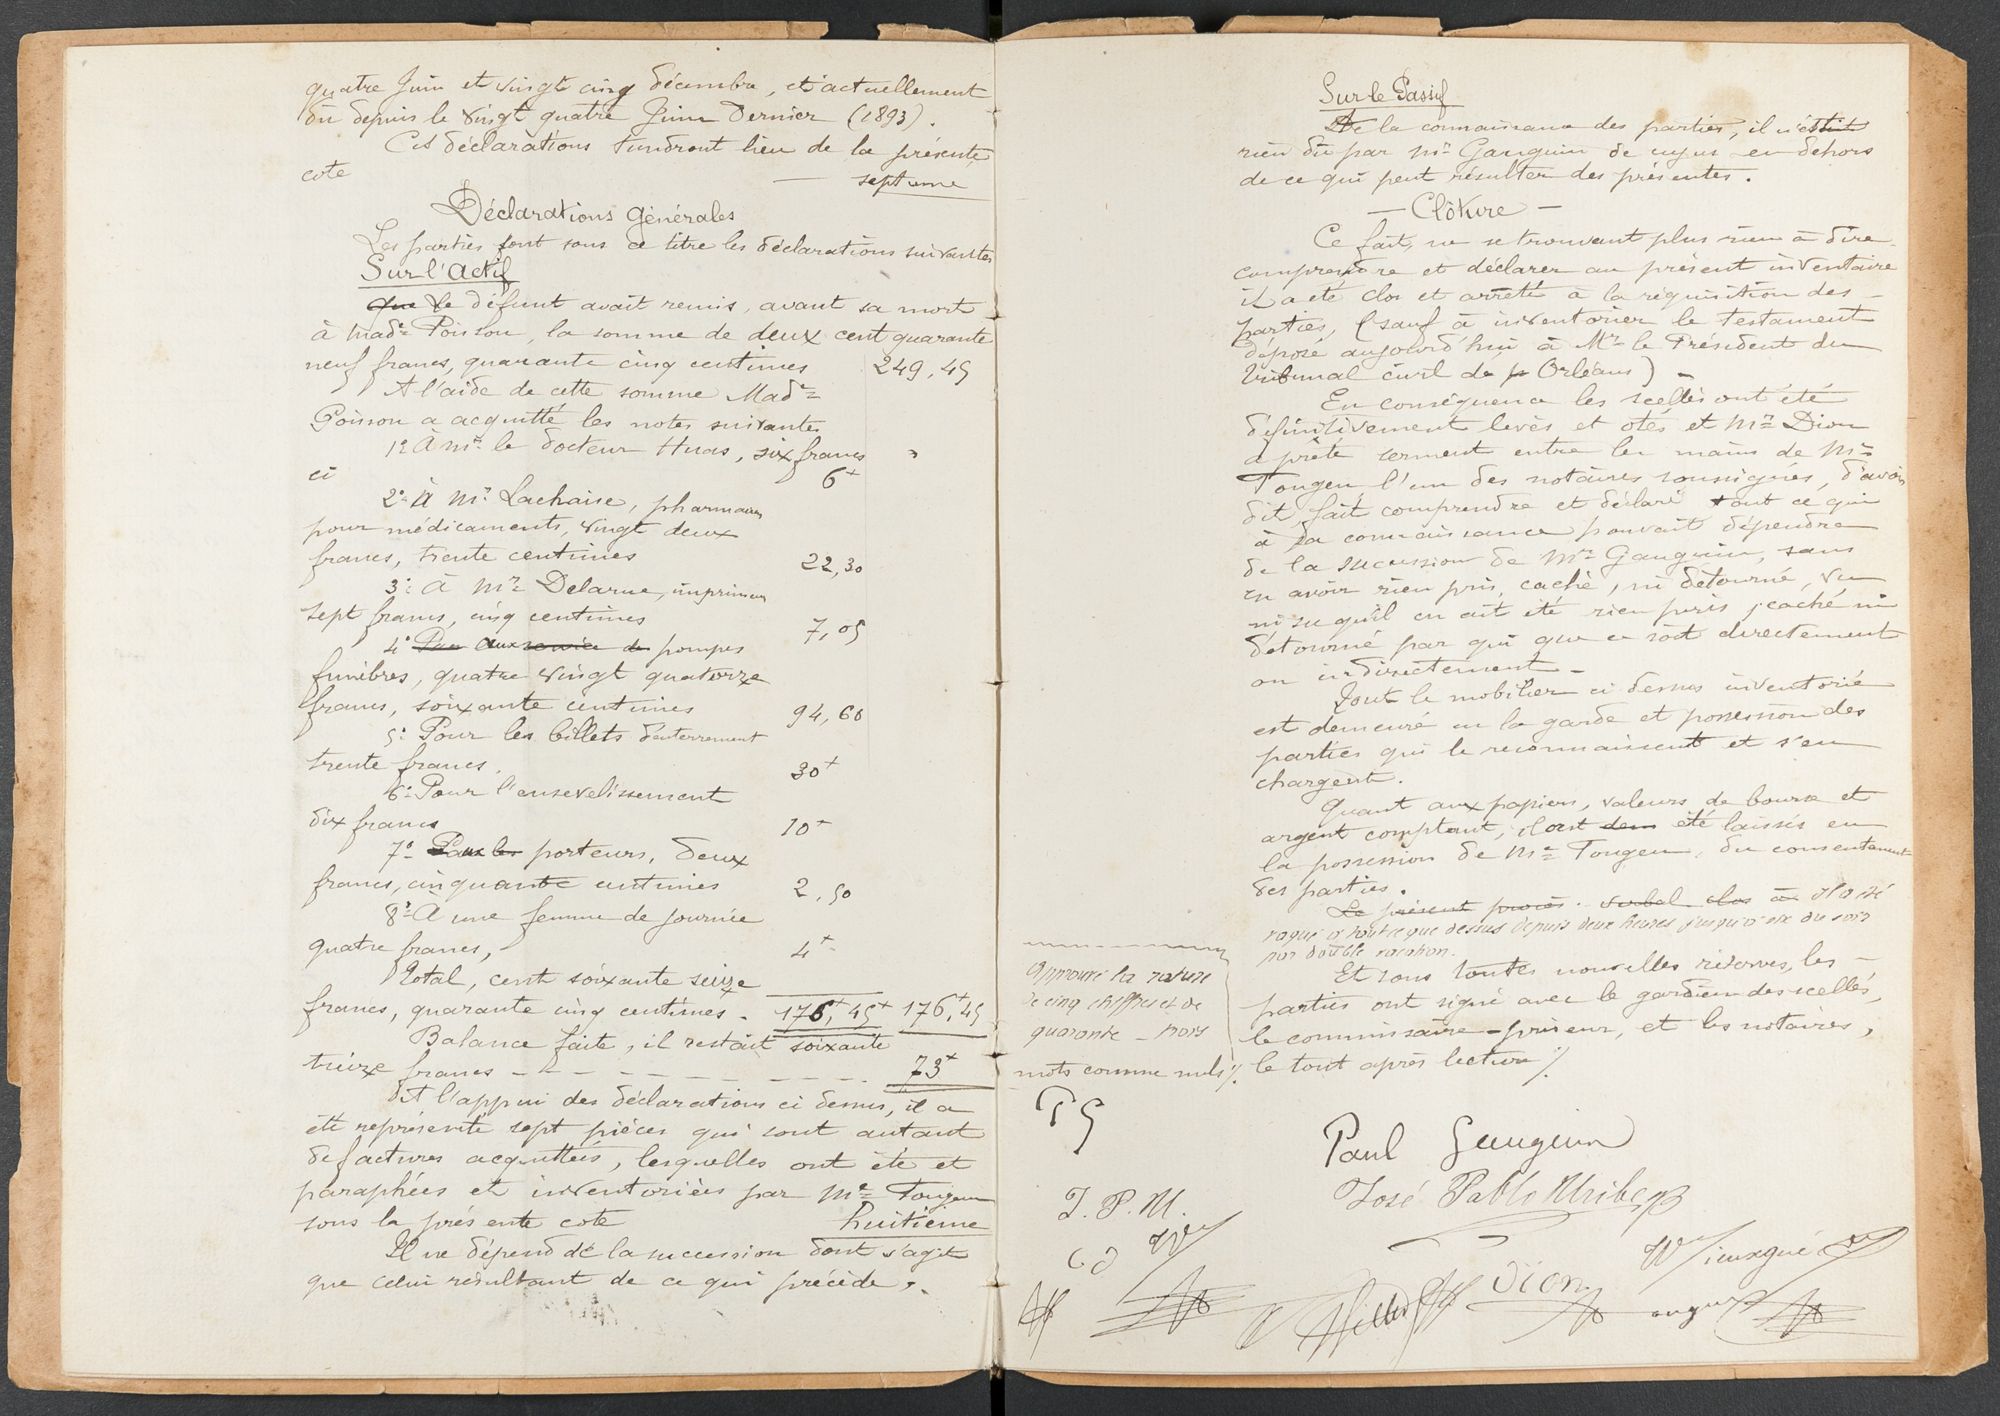 quatre Juin et vingt cinq décembre, et actuellement
dû depuis le vingt quatre Juin dernier (1893).
Ces déclarations tiendront lieu de la présente
cote — septième
Déclarations générales
Les parties font sous ce titre les déclarations suivantes
Sur l'actif
Que le défunt avait remis, avant sa mort
à Made Poisson, la somme de deux cent quarante
neuf francs, quarante cinq centimes 249,45
A l'aide de cette somme Made
Poisson a acquitté les notes suivantes
1° À Mr. le docteur Huas, six francs
ci 6+
2° À Mr. Lachaise, pharmacien
pour médicaments, vingt deux
francs, trente centimes 22,30
3° À Mr Delarue, imprimeur
sept francs, cinq centimes 7,05
4° aux service de pompes
funèbres, quatre vingt quatorze
francs, soixante centimes 94,60
5° Pour les billets d'enterrement
trente francs, 30+
6° Pour l'ensevelissement
dix francs 10+
7° porteurs, deux
francs, cinquante centimes 2,50
8° À une femme de journée
quatre francs, 4+
Total, cent soixante seize
francs, quarante cinq centimes. 176+,45+ 176+,45
Balance faite, il restait soixante
treize francs 73+
Et l'appui des déclarations ci dessus, il a
été représenté sept pièces qui sont autant
de factures acquittées, lesquelles ont été et
paraphées et inventoriées par Me Tougeu
sous la présente cote huitième
Il ne dépend de la succession dont s'agit
que celui résultant de ce qui précède.
Sur le Passif
De la connaissance des parties, il n'était
rien dû par Mr Gauguin de cujus en dehors
de ce qui peut résulter des présentes.
— Clôture —
Ce fait, ne se trouvant plus rien à dire
comprendre et déclarer au présent inventaire
il a été clos et arrêté à la réquisition des
parties, (sauf à inventorier le testament
déposé aujourd'hui à Mr le Président du
Tribunal civil de Orléans)
En conséquence les scellés ont été
définitivement levés et otés et Mr Dion
a prêté serment entre les mains de Me
Tougeu l'un des notaires soussignés, d'avoir
dit, fait comprendre et déclaré tout ce qui
à sa connaissance pouvait dépendre
de la succession de Mr Gauguin, sans
en avoir rien pris, caché, ni détourné, vu
ni su qu'il en ait été rien pris, caché ni
détourné par qui que ce soit directement
ou indirectement —
Tout le mobilier ci dessus inventorié
est demeuré en la garde et possession des
parties qui le reconnaissent et s'en
chargent.
Quant aux papiers, valeurs de bourse et
argent comptant, il ont dem été laissés en
la possession de Me Tougeu, du consentement
des parties.
Le présent procès-verbal clos à il a été
vaqué à tout ce que dessus depuis deux heures jusqu'à six du soir
par double vacation.
Et sous toutes nouvelles réserves, les
parties ont signé avec le gardien des scellés,
le commissaire-priseur, et les notaires,
le tout après lecture ./.
Approuvé la rature
de cinq chiffres et de
quarante - trois
mots comme nuls ./.
PG
J. P. U.
CD
Paul Gauguin
José Pablo Uribe
Vieuxgué
Dion